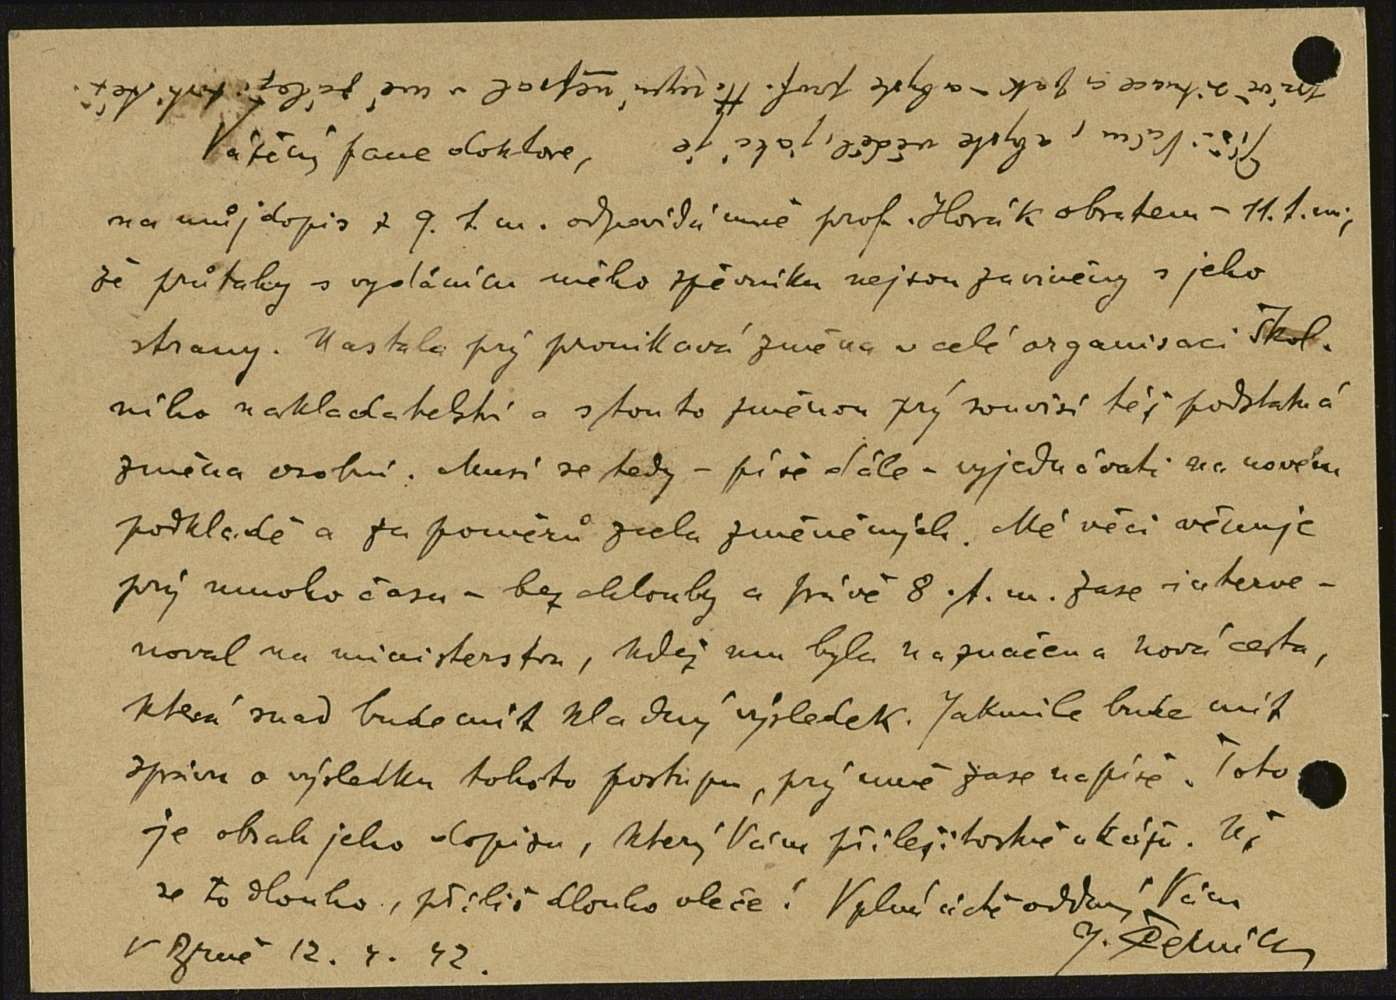 Vážený pane doktore,
na můj dopis z 9. t. m. odpovídá mně prof. Horák obratem – 11. t. m.,
že průtahy s vydáním mého zpěvníku nejsou zaviněny s jeho
strany. Nastala prý pronikavá změna v celé organisaci Škol-
ního nakladatelství a s touto změnou prý souvisí též podstatná
změna osobní. Musí se tedy – píše dále – vyjednávati na novém
podkladě a za poměrů zcela změněných. Mé věci věnuje
prý mnoho času – bez chlouby a právě 8. t. m. zase interve-
noval na ministerstvu, kdež mu byla naznačena nová cesta,
která snad bude mít kladný výsledek. Jakmile bude mít
zprávu o výsledku tohoto postupu, prý mně zase napíše. Toto
je obsah jeho dopisu, který Vám příležitostně ukáži. Už
se to dlouho, příliš dlouho vleče! V plné úctě oddaný Vám
V Brně 12. 4. 42. J. Černík
Píši Vám, abyste věděl, jaká je
situace a pak – abyste prof. nepsal v mé